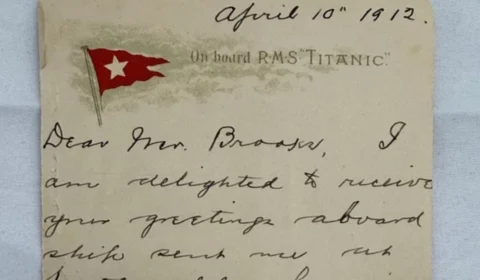 April 10" 1912.
On board R.M.S. "TITANIC."
Dear Mr. Brooks, I
am delighted to receive
your greetings aboard
ship sent me at